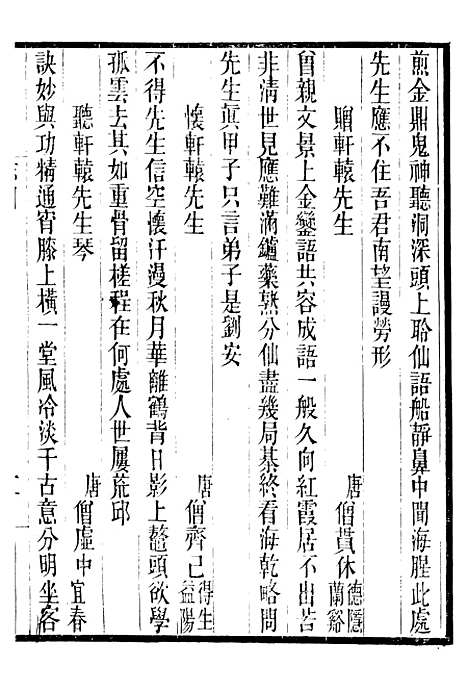 煎金鼎鬼神聽洞深頭上聆仙語船靜鼻中聞海腥此處
先生應不住吾君南望謾勞形
贈軒轅先生 唐 僧貫休 德隱 蘭谿
曾親文景上金鑾語共容成語一般久向紅霞居不出若
非清世見應難滿鑪藥熟分仙盡幾局棊終看海乾略問
先生眞甲子只言弟子是劉安
懷軒轅先生 唐 僧齊己 得生 益陽
不得先生信空懷汗漫秋月華離鶴背日影上鼇頭欲學
孤雲去其如重骨留槎程在何處人世屢荒邱
聽軒轅先生琴 唐 僧虛中 宜春
訣妙與功精通宵膝上橫一堂風冷淡千古意分明坐客